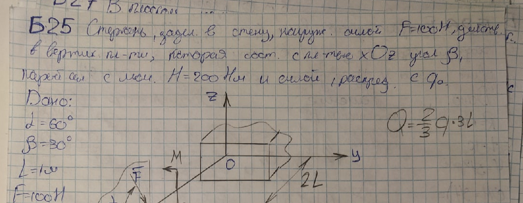 Б25 Стержень, задел. в стену, нагруж. силой F=100Н, действ.
в вертик. пл-ти, которая сост. с пл-тью xOz угол β,
парой сил с мом. M=200Нм и силой, распред. с q₀
Дано:
α=60°
β=30°
L=1м
F=100Н
z
M
F
O
y
2L
Q=2/3 q·3L